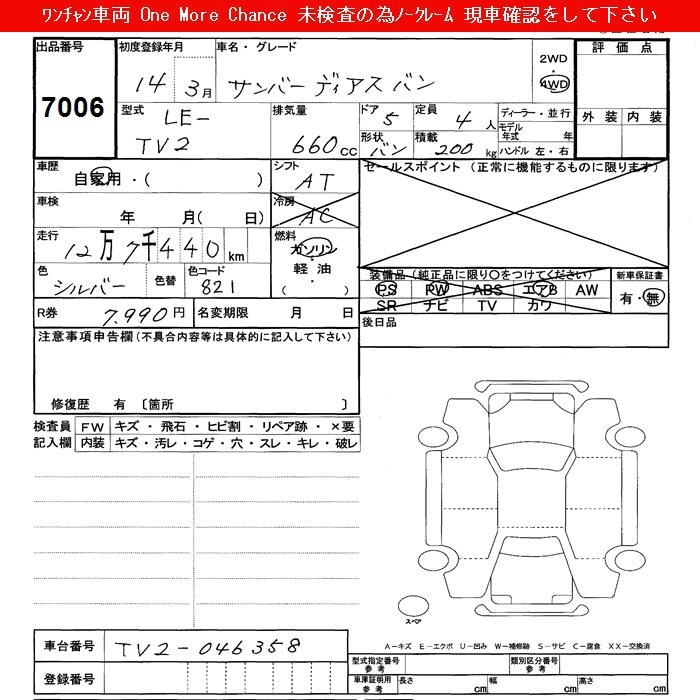 ワンチャン車両 One More Chance 未検査の為ノークレーム 現車確認をして下さい
出品番号 初度登録年月 車名・グレード 評価点
7006 14 3月 サンバー ディアス バン 2WD
4WD
外装 内装
型式 LE- 排気量 ドア 5 定員 4人 ディーラー・並行
TV2 660cc 形状 バン 積載 200kg モデル年式 年
ハンドル 左・右
車歴 自家用・( ) シフト AT セールスポイント (正常に機能するものに限ります)
車検 年 月( 日) 冷房 AC
走行 12万7千440km 燃料 ガソリン・軽油・( )
色 シルバー 色替 色コード 821
装備品(純正品に限り○をつけてください) 新車保証書
PS PW ABS エアB AW 有・無
SR ナビ TV カワ
R券 7.990円 名変期限 月 日 後日品
注意事項申告欄(不具合内容等は具体的に記入して下さい)
修復歴 有 〔箇所 〕
検査員 FW キズ・飛石・ヒビ割・リペア跡・×要
記入欄 内装 キズ・汚レ・コゲ・穴・スレ・キレ・破レ
スペア
A-キズ E-エクボ U-凹み W-補修跡 S-サビ C-腐食 XX-交換済
車台番号 TV2-046358
型式指定番号 参考 類別区分番号 参考
登録番号 車庫証明用 参考 長さ cm 幅 cm 高さ cm